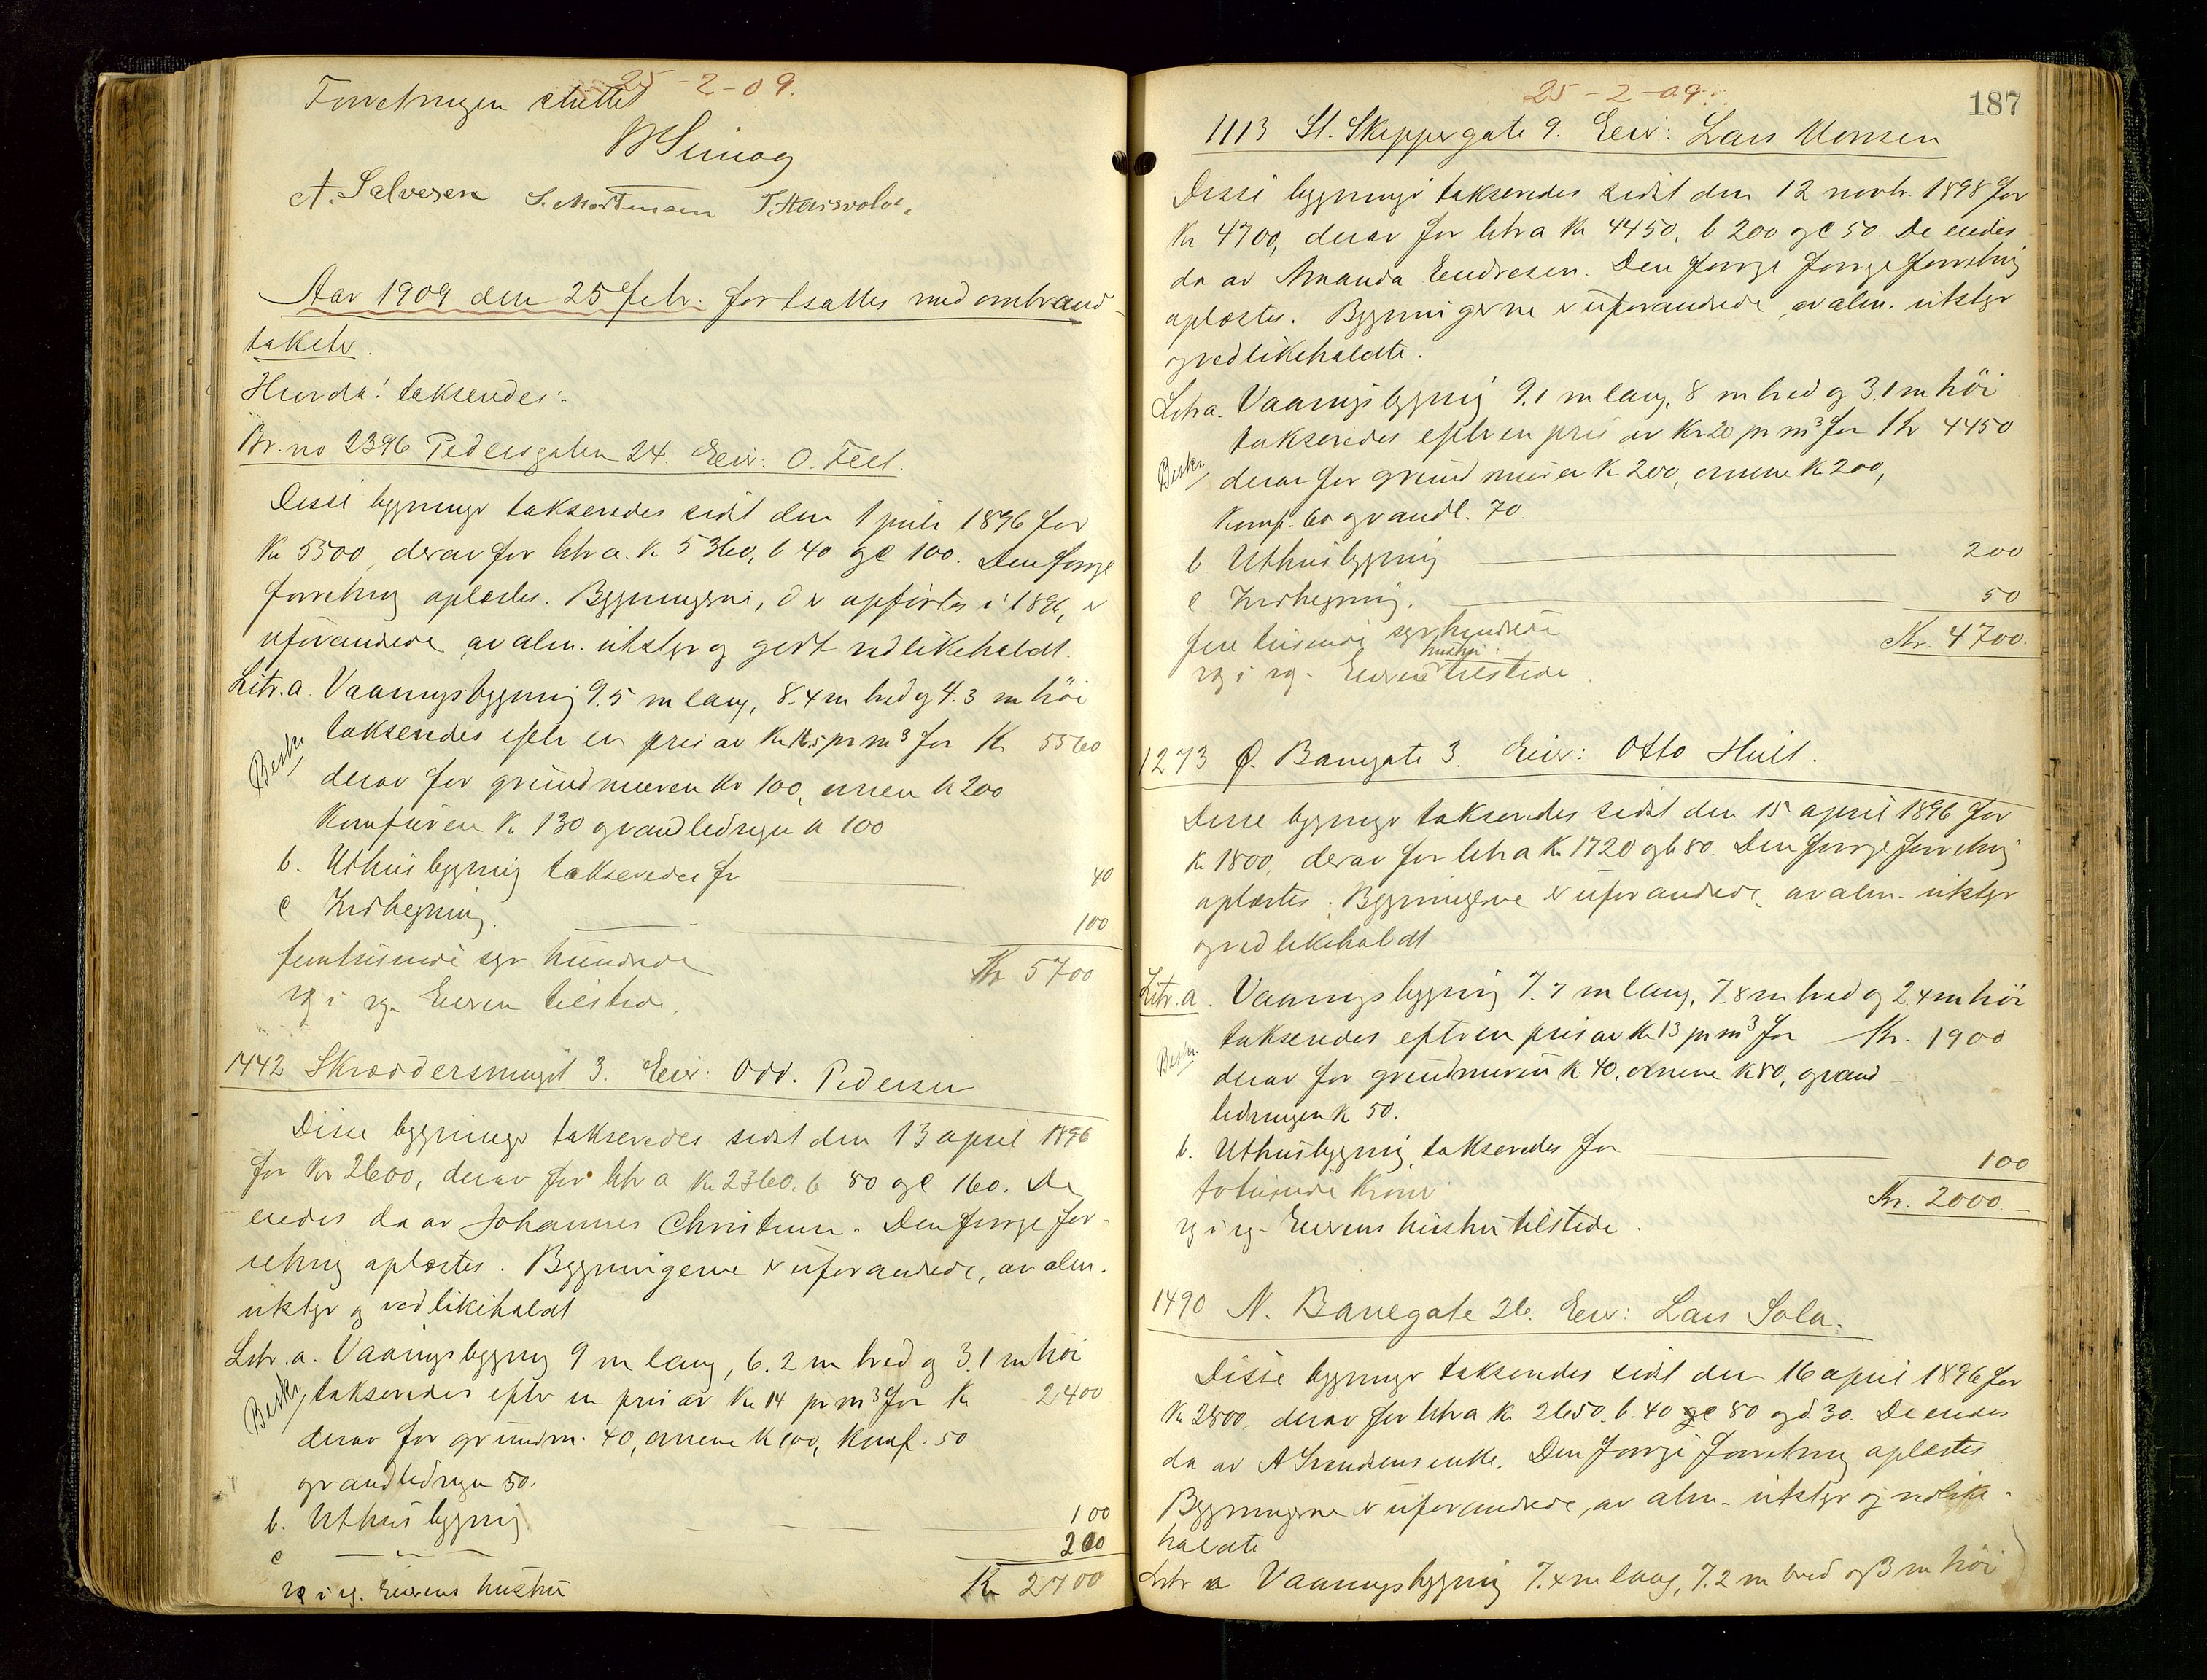 25-2-09.
Forretningen sluttet
A. Salvesen S. Mortensen
Aar 1909 den 25 febr. fortsattes med ombrand-
takster.
Hvorda! takseredes:
Br. no 2396 Pedersgaten 24. Eier: O. Feet.
Disse bygninger takseredes sidst den 1 juli 1896 for
Kr 5500, derav for litra a. Kr 5360, b 40 og c 100. Den forrige
forretning oplæstes. Bygningerne, d er opførtes i 1896, er
uforandrede av alm. utstyr og godt vedlikeholdt.
Litr. a. Vaaningsbygning 9.5 m lang, 8.4 m bred og 4.3 m höi
Beskr. takseredes efter en pris av Kr 16.5 pr m³ for Kr 5560
derav for grundmuren Kr 100, ovnen Kr 200
Komfüren Kr 130 og vandledningen Kr 100
b. Uthusbygning takseredes for 40
c Indhegning. 100
femtusinde syv hundrede Kr 5700
Eieren tilstede.
1442 Skræddersmuget 3. Eier: Odd. Pedersen
Disse bygninger takseredes sidst den 13 april 1896
for Kr 2600, derav for litra a Kr 2360. b 80 og c 160. De
eiedes da av Johannes Christensen. Den forrige for-
retning oplæstes. Bygningerne er uforandrede, av alm.
utstyr og vedlikeholdt
Litr. a. Vaaningsbygning 9 m lang, 6.2 m bred og 3.1 m höi
Beskr. takseredes efter en pris av Kr 14 pr m³ for Kr 2400
derav for grundm. 40, ovnene Kr 100, Komf. 50
og vandledningen 50.
b. Uthusbygning 100
c 200
Eierens hustru Kr 2700
187
25-2-09.
1113 St. Skippergate 9. Eier: Lars Monsen
Disse bygninger takseredes sidst den 12 novbr. 1898 for
Kr 4700, derav for litra a Kr 4450, b 200 og c 50. De eiedes
da av Amanda Endresen. Den forrige forretning
oplæstes. Bygningerne er uforandrede, av alm. utstyr
og vedlikeholdte.
Litr a. Vaaningsbygning 9.1 m lang, 8 m bred og 3.1 m höi
takseredes efter en pris av Kr 20 pr m³ for Kr 4450
Beskr. derav for grundmuren Kr 200, ovnene Kr 200,
Komf. 60 og vandl. 70.
b Uthusbygning 200
c Indhegning. 50
fire tusinde syv hundrede Kr. 4700.
Eierens hustru tilstede.
1273 Ø. Banegate 3. Eier: Otto Hult.
Disse bygninger takseredes sidst den 15 april 1896 for
Kr 1800, derav for litra a Kr 1720 og b 80. Den forrige forretning
oplæstes. Bygningerne er uforandrede, av alm. utstyr
og vedlikeholdt
Litr. a. Vaaningsbygning 7.7 m lang, 7.8 m bred og 2.4 m höi
takseredes efter en pris av Kr 13 pr m³ for Kr. 1900
Beskr. derav for grundmuren Kr 40, ovnene Kr 80, og vand-
ledningen Kr 50.
b. Uthusbygning, takseredes for 100
totusinde Kroner Kr. 2000.-
Eierens hustru tilstede.
1490 N. Banegate 26. Eier: Lars Sola.
Disse bygninger takseredes sidst den 16 april 1896 for
Kr 2800, derav for litra a Kr 2650. b. 40 og c 80 og d. 30. De eiedes
da av A enke. Den forrige forretning oplæstes
Bygningerne er uforandrede, av alm. utstyr og vedlike-
holdte
Litr a Vaaningsbygning 7.4 m lang, 7.2 m bred og 3 m höi